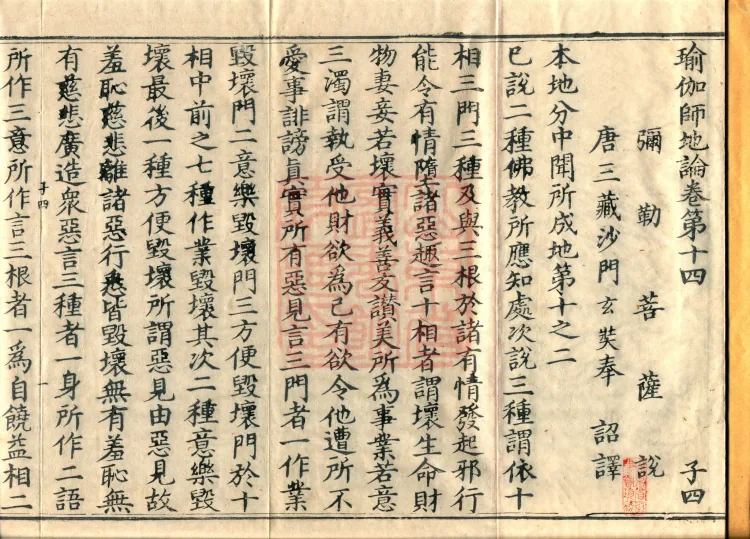 瑜伽師地論卷第十四 子四
彌勒菩薩說
唐三藏沙門玄奘奉 詔譯
本地分中聞所成地第十之二
已說二種佛教所應知處次說三種謂依十
相三門三種及與三根於諸有情發起邪行
能令有情墮諸惡趣言十相者謂壞生命財
物妻妾若壞實義善友讚美所為事業若意
三濁謂執受他財欲為己有欲令他遭所不
愛事誹謗真實所有惡見言三門者一作業
毀壞門二意樂毀壞門三方便毀壞門於十
相中前之七種作業毀壞其次二種意樂毀
壞最後一種方便毀壞所謂惡見由惡見故
羞恥慈悲離諸惡行悉皆毀壞無有羞恥無
有慈悲廣造眾惡言三種者一身所作二語
子四 一
所作三意所作言三根者一為自饒益相二